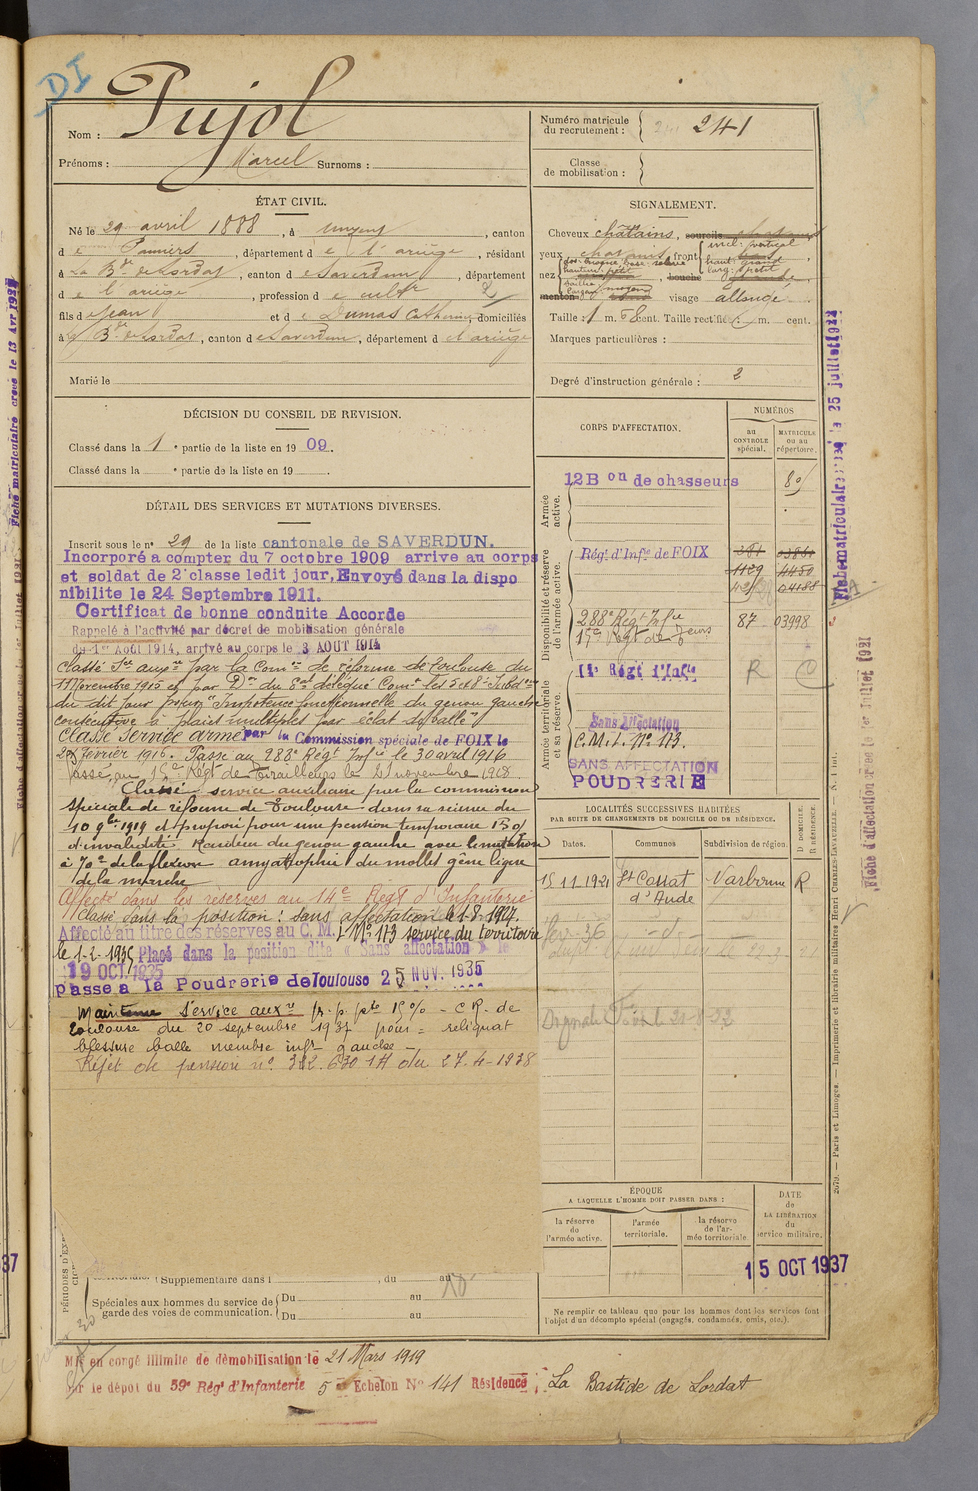 DI
Nom : Pujol
Prénoms : Marcel Surnoms :
Numéro matricule du recrutement : 241
Classe de mobilisation :
ÉTAT CIVIL.
Né le 29 avril 1888, à Unzent, canton
d e Pamiers, département d e l'ariège, résidant
à La Bde de Lordat, canton d e Saverdun, département
d e l'ariège, profession d e cultr
fils d e Jean et d e Dumas Catherine, domiciliés
à La Bde de Lordat, canton d e Saverdun, département d e l'ariège
Marié le
SIGNALEMENT.
Cheveux châtains, sourcils châtains
yeux châtains, front incl: vertical haut: grand larg: petit
nez dos: busqué, base: relevée hauteur: petit saillie largeur moyens, bouche
menton visage allongé
Taille : 1 m. 58 cent. Taille rectifiée : m. cent.
Marques particulières :
Degré d'instruction générale : 2
DÉCISION DU CONSEIL DE REVISION.
Classé dans la 1 e partie de la liste en 1909.
Classé dans la e partie de la liste en 19
DÉTAIL DES SERVICES ET MUTATIONS DIVERSES.
Inscrit sous le n° 29 de la liste cantonale de SAVERDUN.
Incorporé a compter du 7 octobre 1909 arrive au corps
et soldat de 2e classe ledit jour. Envoyé dans la dispo
nibilite le 24 Septembre 1911.
Certificat de bonne conduite Accorde
Rappelé à l'activité par décret de mobilisation générale
du 1er Août 1914, arrivé au corps le 3 AOUT 1914
Classé Sce auxre par la Comon de réforme de Toulouse du
11 Novembre 1915 et par Don du Gal délégué Comt les 5 et 8e Subdons
du dit jour pour "Impotence fonctionnelle du genou gauche
consécutive à plaies multiples par éclat de balle"
Classé Service armé par la Commission spéciale de FOIX le
Février 1916. Passé au 288e Régt Infie le 30 avril 1916
Passé au 15e Régt de Tirailleurs le 21 novembre 1918.
Classé service auxiliaire par la commission
Spéciale de réforme de Toulouse dans sa séance du
10 9bre 1919 et proposé pour une pension temporaire 15%
d'invalidité. Raideur du genou gauche avec limitation
à 70° de la flexion amyotrophie du mollet gêne légère
de la marche
Affecté dans les réserves au 14e Régt d'Infanterie
Classé dans la position : sans affectation le 1-8-1927.
Affecté au titre des réserves au C.M.I. N° 173 service du territoire
le 1-2-1935 Placé dans la position dite « Sans affectation » le
19 OCT. 1935
Passe a la Poudrerie de Toulouse 25 NOV. 1935
Maintenu Service auxre p. p. pte 15% - C.R. de
Toulouse du 20 septembre 1937 pour = reliquat
blessure balle membre infr gauche -
Rejet de pension n° 312.630 1H du 27-4-1938
CORPS D'AFFECTATION.
NUMÉROS
au CONTRÔLE spécial.
MATRICULE ou au répertoire.
Armée active.
12Bon de chasseurs
80
Disponibilité et réserve de l'armée active.
Régt d'Infie de FOIX
1129 4450
04188
288e Régt Infie 87 03998
15e Régt de
Armée territoriale et sa réserve.
14e Régt d'Infie R
Sans affectation
C.M.I. N° 173.
SANS AFFECTATION
POUDRERIE
LOCALITÉS SUCCESSIVES HABITÉES
PAR SUITE DE CHANGEMENTS DE DOMICILE OU DE RÉSIDENCE.
Dates. Communes Subdivision de région. D DOMICILE. R RÉSIDENCE.
15 11 1921 St Couat d'Aude Narbonne R
fev-36 - d° -
ÉPOQUE
A LAQUELLE L'HOMME DOIT PASSER DANS :
la réserve de l'armée active.
l'armée territoriale.
la réserve de l'armée territoriale
DATE de LA LIBÉRATION du service militaire.
15 OCT 1937
PÉRIODES D'EX
(Supplémentaire dans l , du au
Spéciales aux hommes du service de garde des voies de communication.
Du au
Du au
Ne remplir ce tableau que pour les hommes dont les services font l'objet d'un décompte spécial (engagés, condamnés, omis, etc.).
Mis en congé illimité de démobilisation le 21 Mars 1919
Par le dépôt du 59e Régt d'Infanterie 5e Echelon N° 141 Résidence : La Bastide de Lordat
Fiche matriculaire créée le 25 juillet 1922
Fiche d'affectation créée le 1er Juillet 1921
2079. — Paris et Limoges. — Imprimerie et librairie militaires Henri CHARLES-LAVAUZELLE.
Fiche matriculaire créée le 13 Avr 192
37